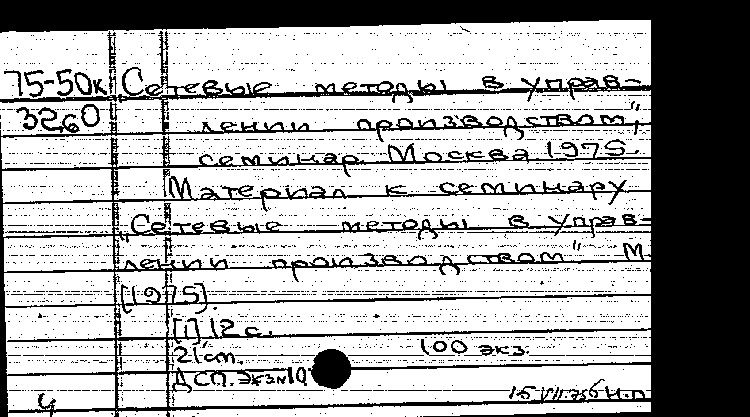 75-50к Сетевые методы в управ-
3260 лении производством",
семинар. Москва. 1975.
Материал к семинару
„Сетевые методы в управ-
лении производством" М.
[1975].
[1] 12 с.
21 см. 100 экз.
ДСП. Экз №
15 VII.75
ч